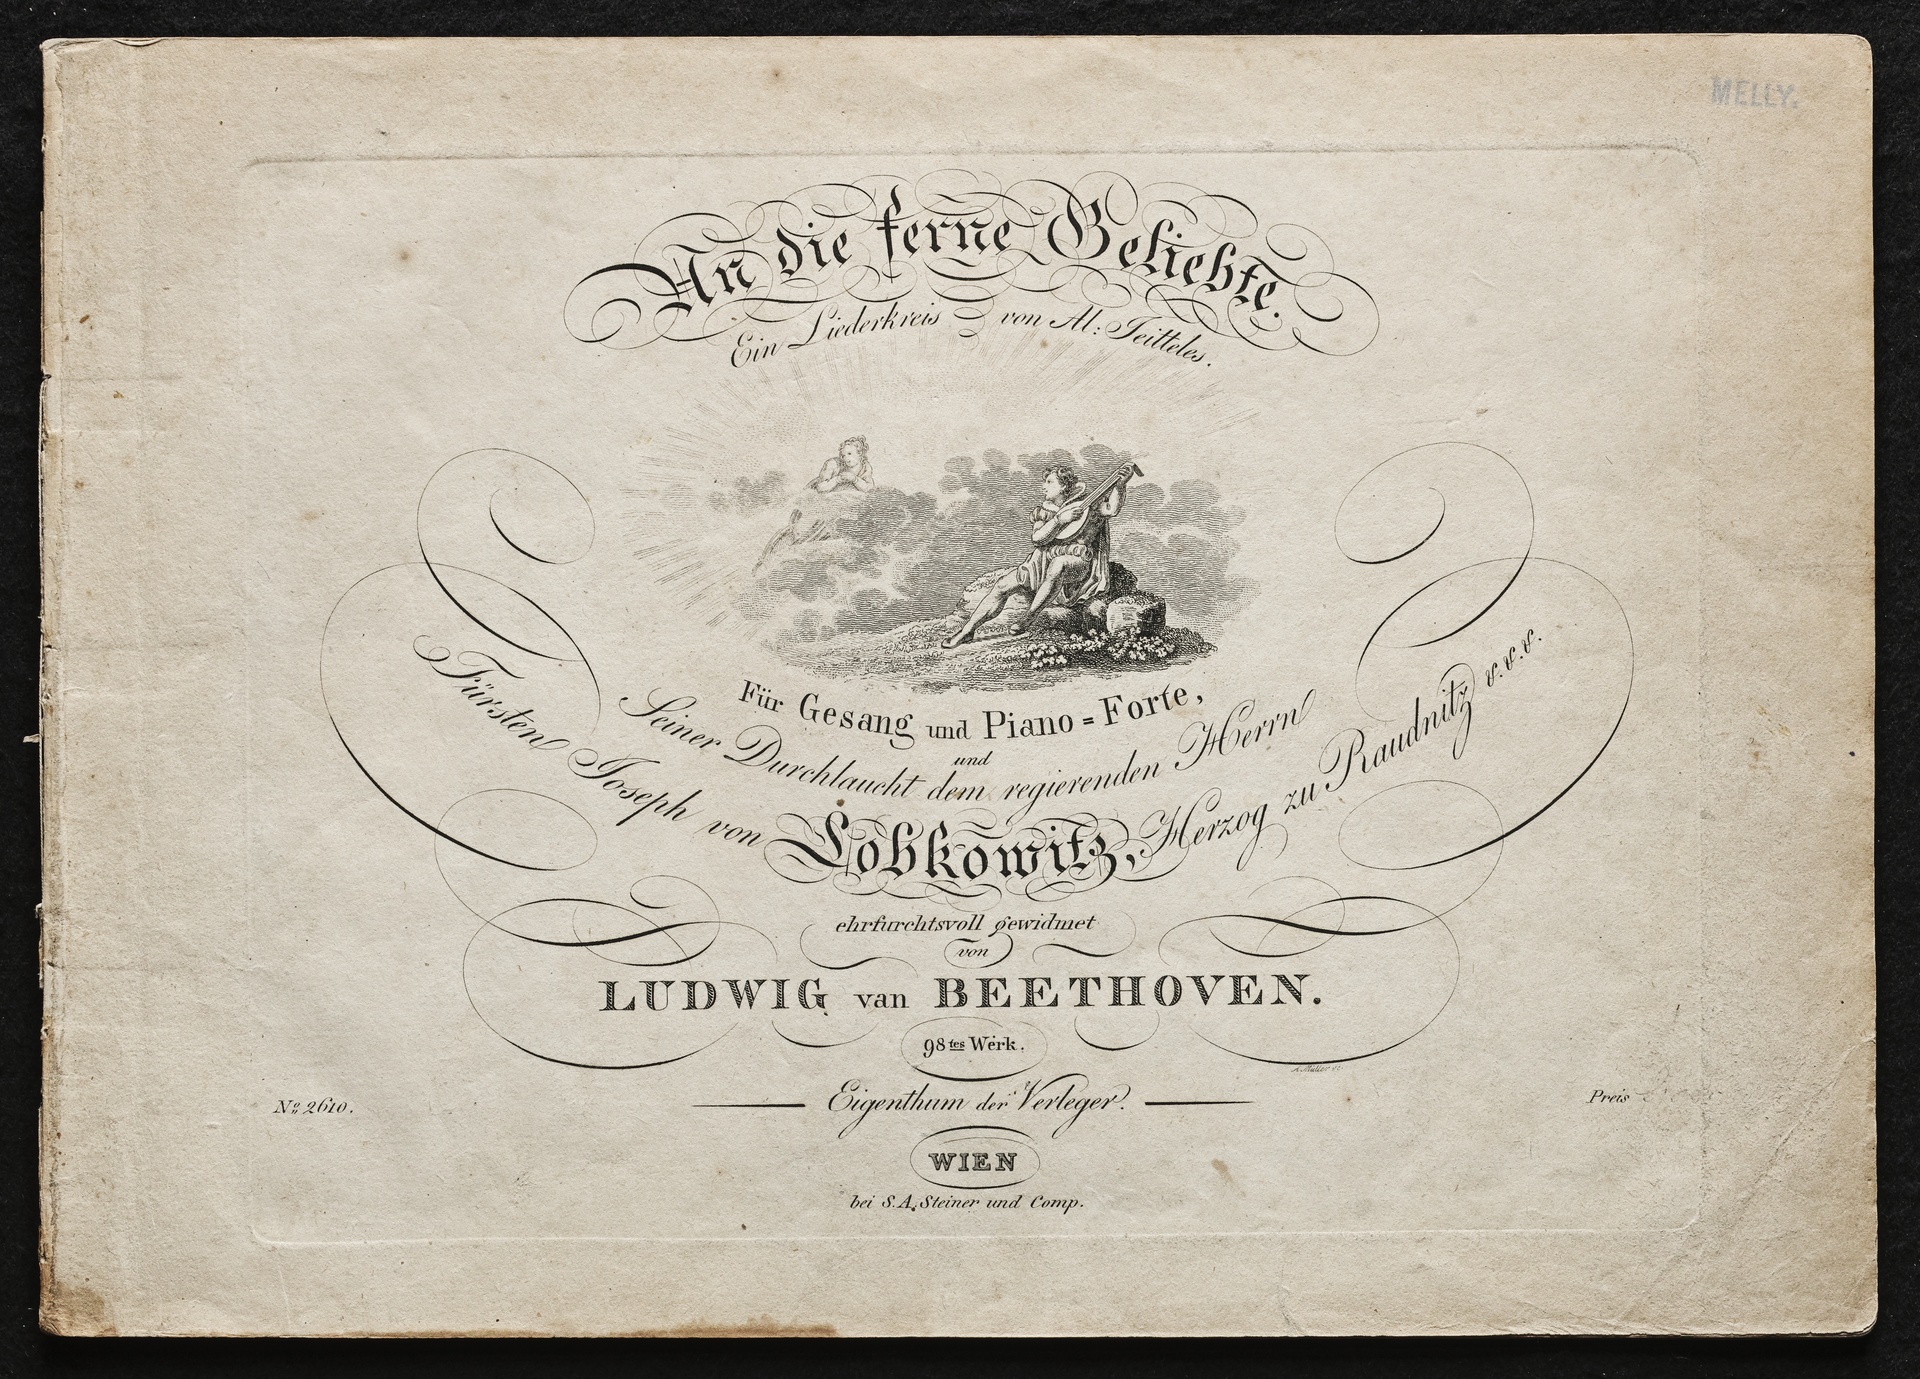 MELLY.
An die ferne Geliebte.
Ein Liederkreis von Al: Jeitteles.
Für Gesang und Piano=Forte,
und
Seiner Durchlaucht dem regierenden Herrn
Fürsten Joseph von Lobkowitz, Herzog zu Raudnitz &.&.&.
ehrfurchtsvoll gewidmet
von
LUDWIG van BEETHOVEN.
98tes Werk.
A. Müller sc.
Eigenthum der Verleger.
No. 2610.
Preis
WIEN
bei S.A. Steiner und Comp.